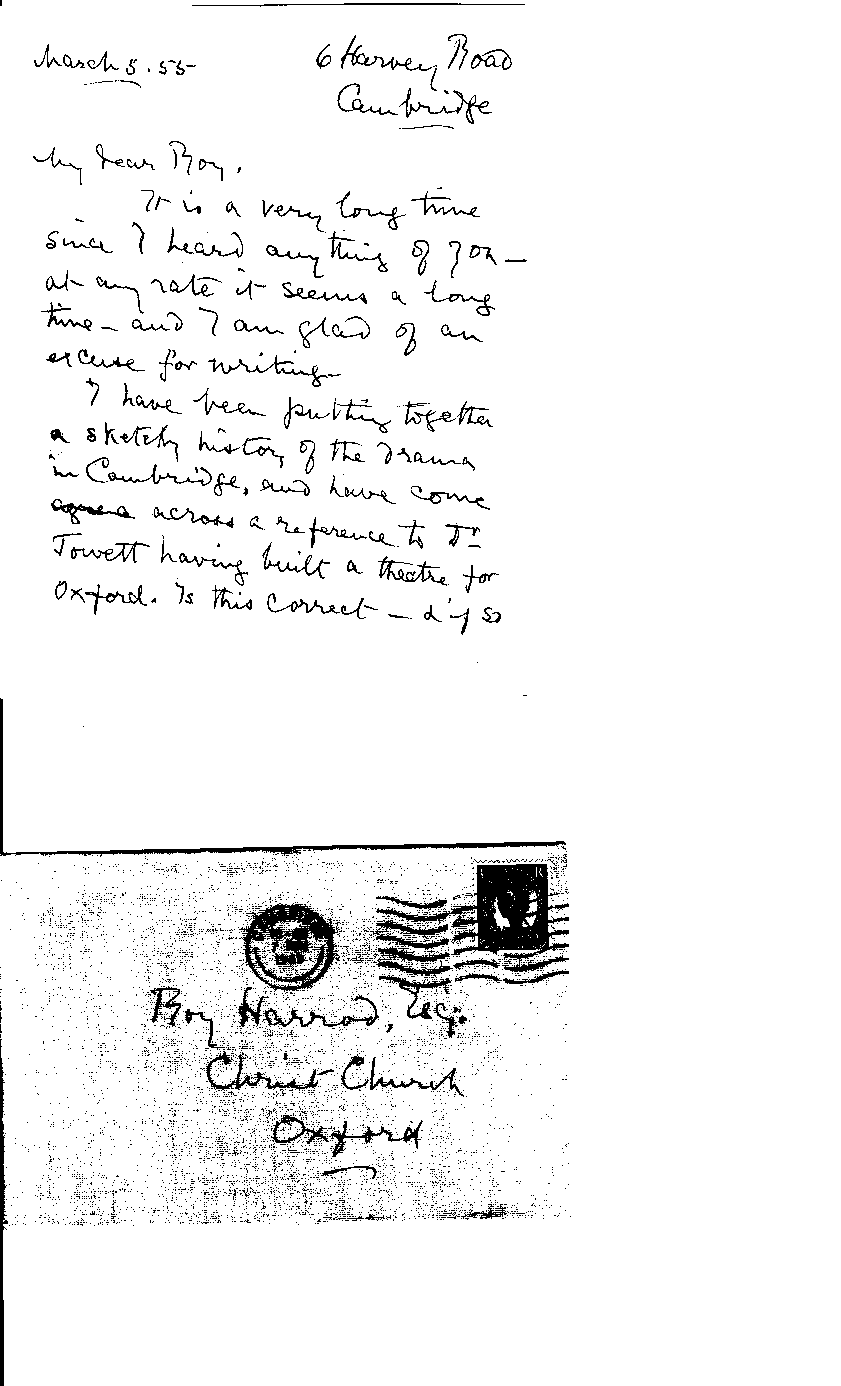 March 5. 55
6 Harvey Road
Cambridge
My dear Roy.
It is a very long time
since I heard anything of you —
at any rate it seems a long
time — and I am glad of an
excuse for writing.
I have been putting together
a sketchy history of the drama
in Cambridge, and have come
across a reference to Dr
Jowett having built a theatre for
Oxford. Is this correct — & if so
Roy Harrod, Esq.
Christ Church
Oxford